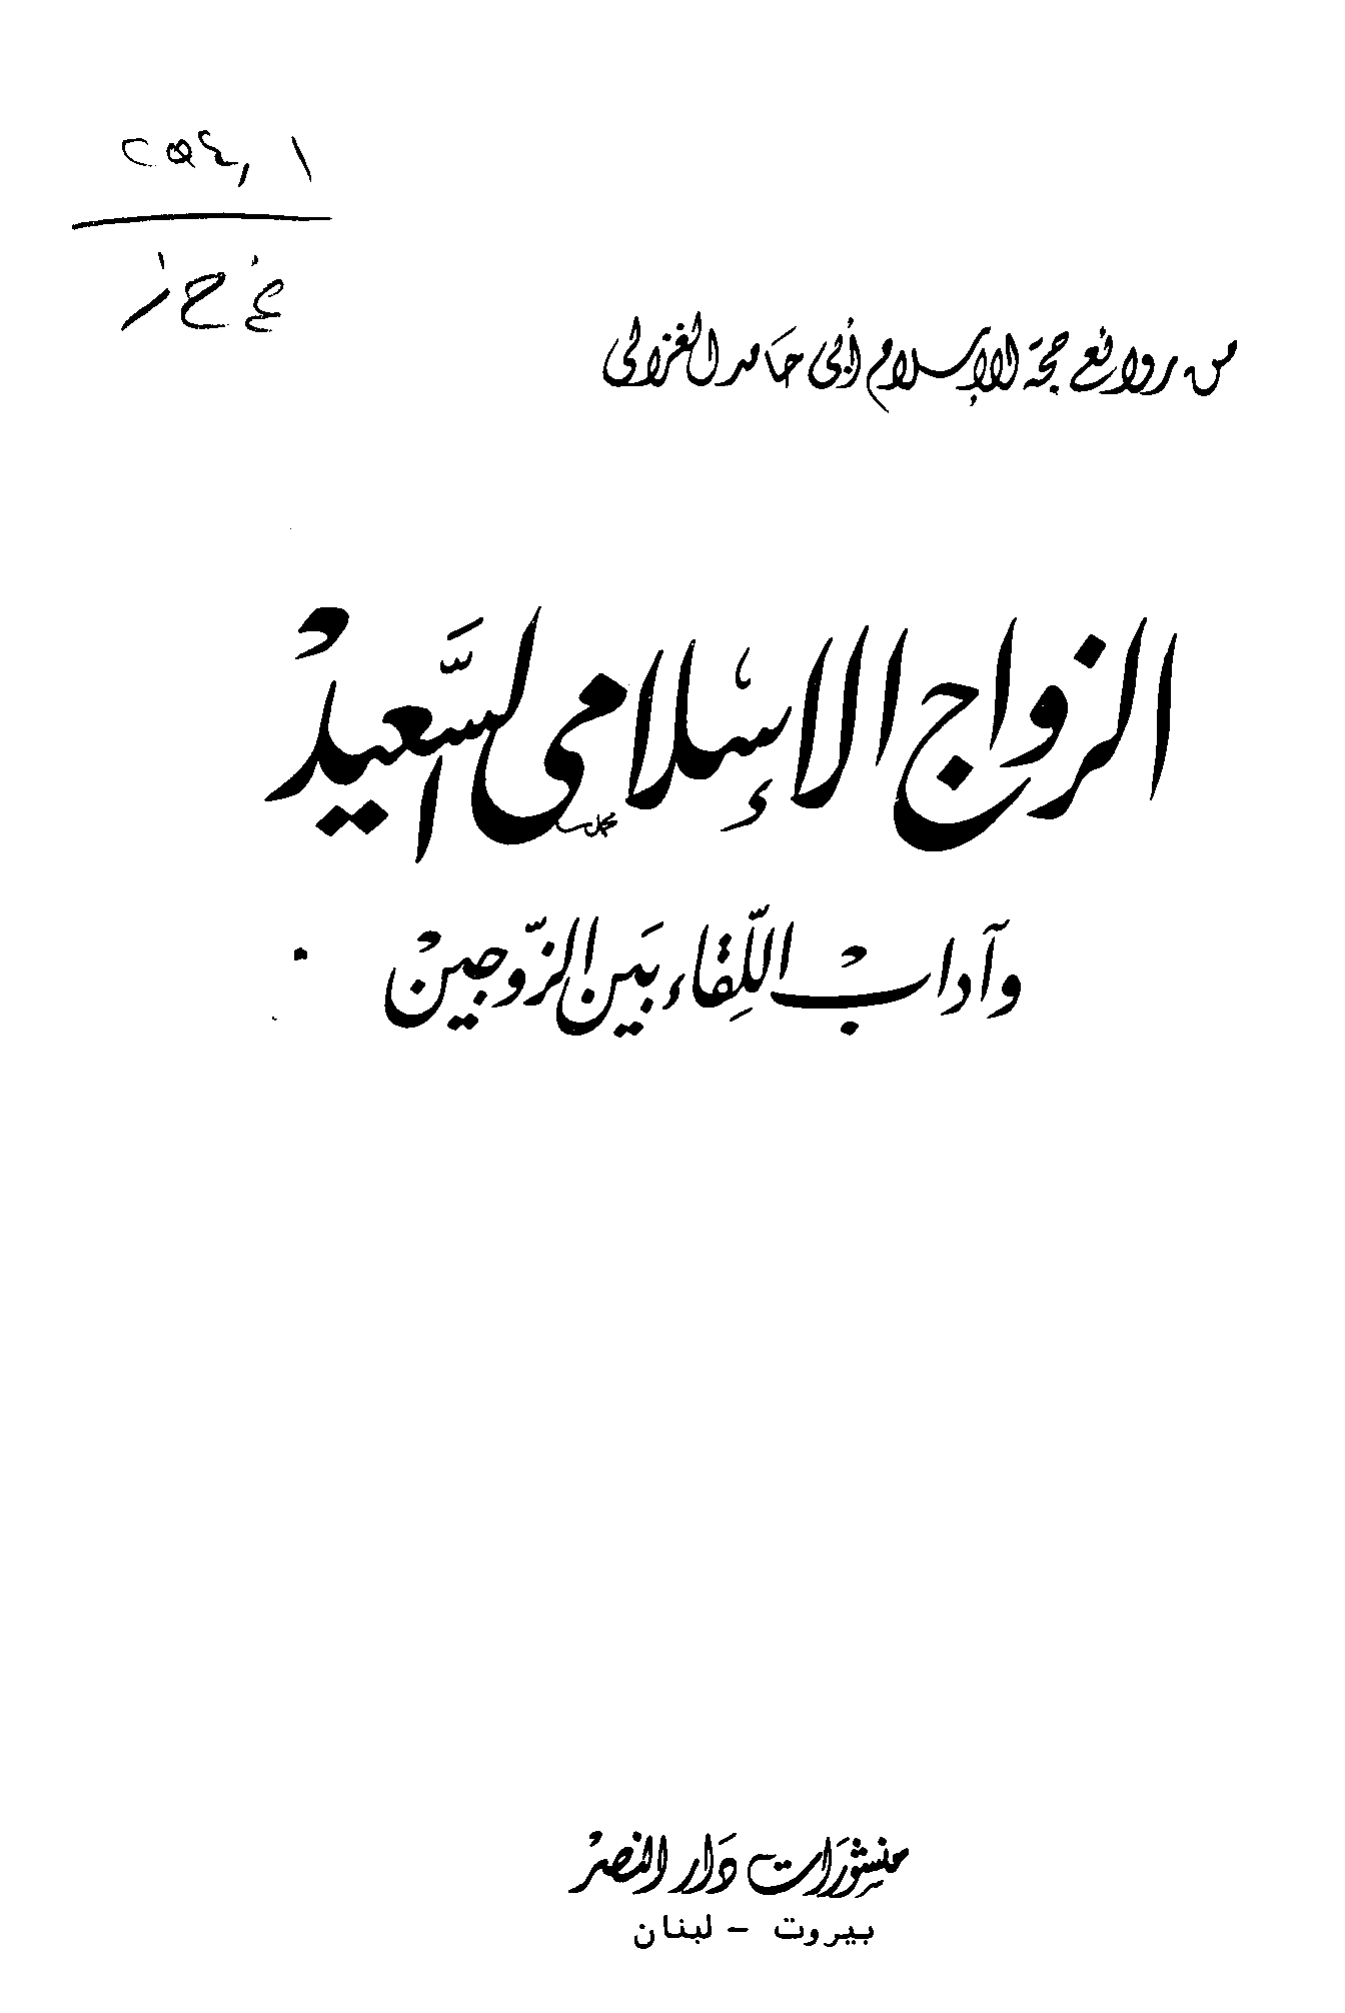 ٢٥٤,١
غ ح ز
من روائع حجة الإسلام أبي حامد الغزالي
الزواج الإسلامي السَّعيدْ
وآدابْ اللّقاء بَين الزّوجينْ
منشورَات دَار النصرْ
بيروت - لبنان